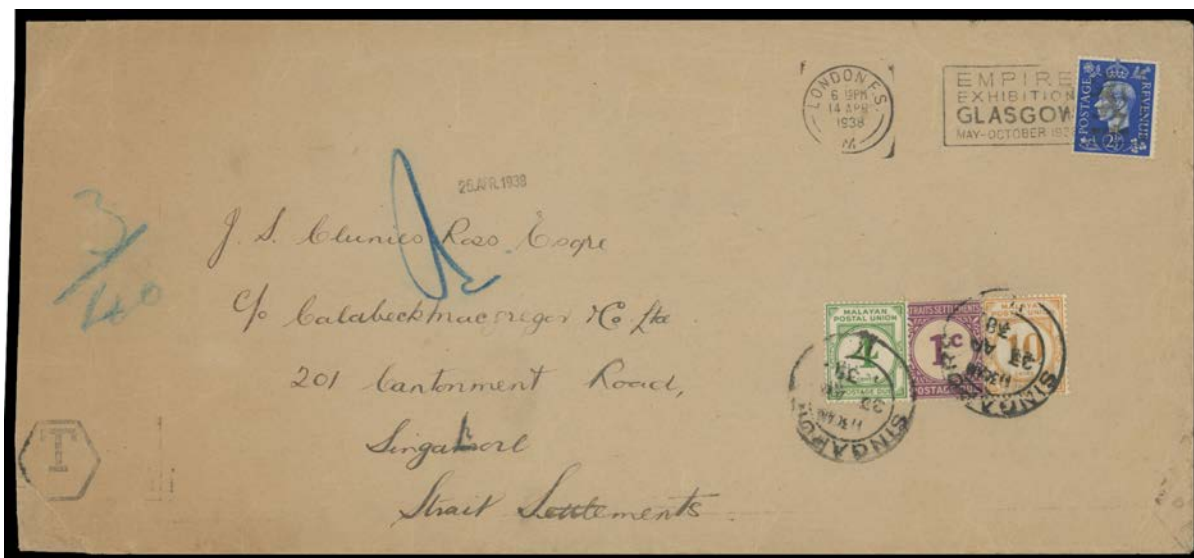 LONDON F.S.
6 15PM
14 APR
1938
W
EMPIRE
EXHIBITION
GLASGOW
MAY-OCTOBER 1938
POSTAGE
REVENUE
2½
26.APR.1938
3/40
J. S. Clunies Ross Esqre
C/o Calabeckmacgregor & Co. Ltd
201 Cantonment Road,
Singapore
Strait Settlements
T
MALAYAN
POSTAL UNION
4
POSTAGE DUE
STRAITS SETTLEMENTS
1c
POSTAGE
10
SINGAPORE
SINGA
AP
38